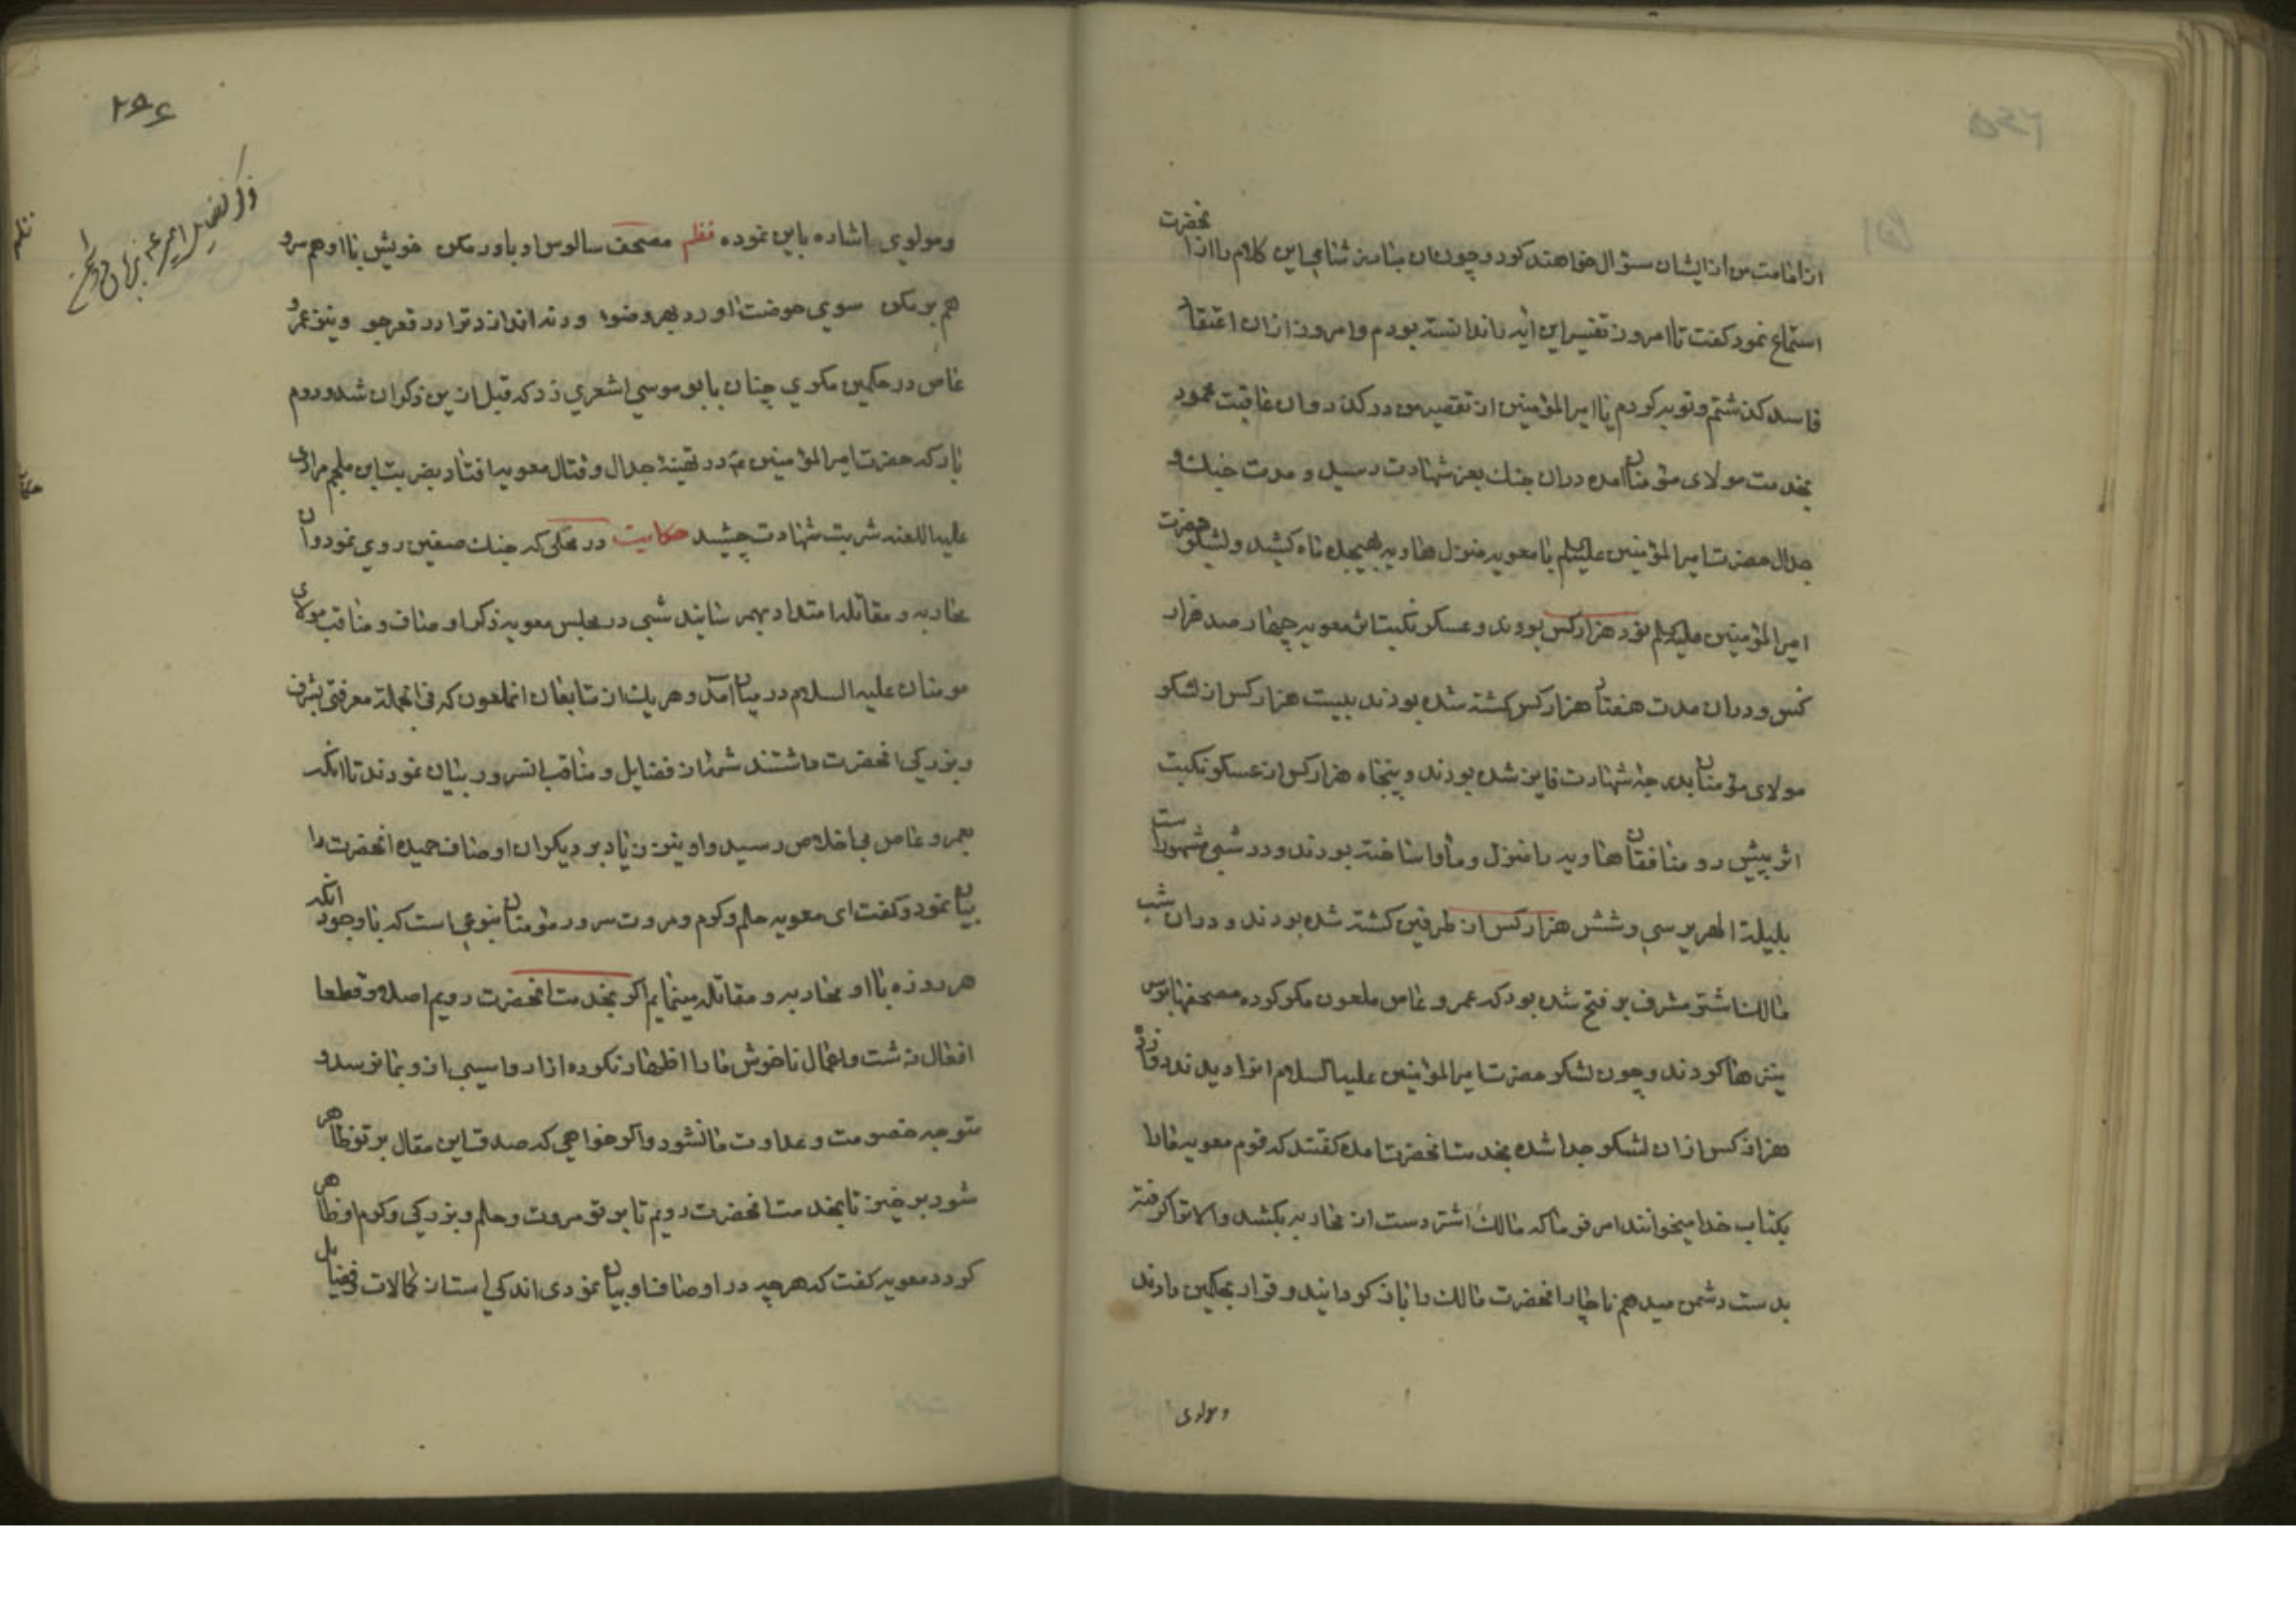 از امامت من از ایشان سؤال خواهند کرد و چون ان مبارز شامی این کلام را از انحضرت
استماع نمود کفت تا امروز تفسیر این ایه را ندانسته بودم و امروز ازان اعتقاد
فاسد کذشتم و توبه کردم یا امیر المؤمنین از تقصیر من در کذر و ان عاقبت محمود
بخدمت مولای مؤمنان امده دران جنك بعز شهادت رسید و مدت جنك و
جدال حضرت امیر المؤمنین علیه السلم با معویه منزل هاویه بهیجده ماه کشید و لشکر حضرت
امیر المؤمنین علیه السلم نود هزار کس بودند و عسکر نکبت اثر معویه چهار صد هزار
کس و دران مدت هفتاد هزار کس کشته شده بودند بیست هزار کس از لشکر
مولای مؤمنان بدرجهٔ شهادت فایز شده بودند و پنجاه هزار کس از عسکر نکبت
اثر پیش رو منافقان هاویه را منزل و مأوا ساخته بودند و در شبی مشهور است
بلیلة الهریر سی و شش هزار کس از طرفین کشته شده بودند و دران شب
مالك اشتر مشرف بر فتح شده بود که عمرو عاص ملعون مکر کرده مصحفها بر سر
نیزها کردند و چون لشکر حضرت امیر المؤمنین علیه السلام انرا دیدند دوازده
هزار کس ازان لشکر جدا شده بخدمت انحضرت امده کفتند که قوم معویه مارا
بکتاب خدا میخوانند امر فرما که مالك اشتر دست از محاربه بکشد والا ترا کرفته
بدست دشمن میدهم ناچار انحضرت مالك را باز کردانیند و قرار بحکمین دادند
و مولوی
۲۶۶
ومولوی اشاره باین نموده نظم مصحف سالوس او باور مکن خویش با او هم سر و
هم بر مکن سوی حوضت اورد بهر وضو ورنه اندازد ترا در قعر جو و نیز عمرو
عاص در حکمین مکری چنان با بو موسی اشعری زد که قبل ازین ذکر ان شد و دوم
بار که حضرت امیر المؤمنین ع در تهیئهٔ جدال و قتال معویه افتاد بضربت ابن ملجم مرادی
علیه اللعنه شربت شهادت چشید حکایت در محلی که جنك صفین روی نمود و ان
محاربه و مقاتله امتداد بهم رسانید شبی در مجلس معویه ذکر اوصاف و مناقب مولای
مومنان علیه السلام در میان امد و هریك از تابعان انملعون که فی الجمله معرفتی بشرف
و بزرکی انحضرت داشتند شمهٔ از فضایل و مناقب انسرور بیان نمودند تا انکه
بعمرو عاص بی اخلاص رسید و او نیز زیاد بر دیکران اوصاف حمیده انحضرت را
بیان نمود و کفت ای معویه حلم و کرم و مروت سرور مؤمنان بنوعی است که با وجود انکه
هر روزه با او محاربه و مقاتله مینمایم اکر بخدمت انحضرت رویم اصلا و قطعا
افعال زشت و اعمال ناخوش مارا اظهار نکرده ازار و اسیبی ازو بما نرسد و
متوجه خصومت و عداوت ما نشود و اکر خواهی که صدق این مقال بر تو ظاهر
شود برخیز تا بخدمت انحضرت رویم تا بر تو مروت و حلم و بزرکی و کرم او ظاهر
کردد معویه کفت که هر چه در اوصاف او بیان نمودی اندکی است از کمالات و فضایل